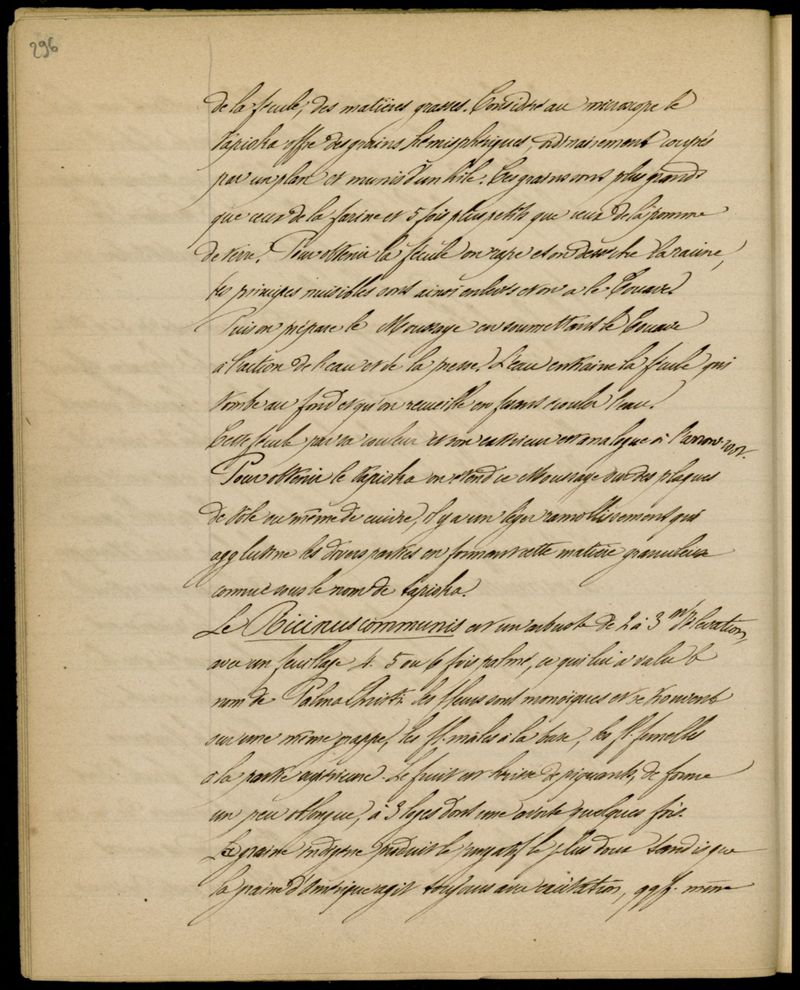 296
de la fécule, des matières grasses. Considéré au microscope le
tapioka offre des grains hémisphériques, ordinairement coupés
par un plan et munis d'un hile. Ces grains sont plus grands
que ceux de la farine et 5 fois plus petits que ceux de la pomme
de terre. Pour obtenir la fécule on râpe et on dessèche la racine,
les principes nuisibles sont ainsi enlevés et on a le Couaque.
Puis on prépare le Moussage en soumettant le Couaque
à l'action de l'eau et de la presse. L'eau entraine la fécule qui
tombe au fond et qu'on recueille en faisant écouler l'eau.
Cette fécule par sa couleur et son extérieur est analogue à l'arrow-root.
Pour obtenir le tapioka on étend ce Moussage sur des plaques
de tôle ou même de cuivre, il y a un léger ramollissement qui
agglutine les divers parties en formant cette matière granuleuse
connue sous le nom de tapioka.
Le Ricinus communis est un arbuste de 2 à 3 m d'élévation,
avec un feuillage 4. 5 ou 6 fois palmé, ce qui lui a valu le
nom de Palma Christi. Les fleurs sont monoïques et se trouvent
sur une même grappe, les fl. mâles à la base, les fl. femelles
à la partie supérieure. Le fruit est hérissé de piquants, de forme
un peu oblongue, à 3 loges dont une avorte quelques fois.
La graine indigène produit le purgatif le plus doux tandis que
la graine d'Amérique agit toujours avec excitation, qqf. même